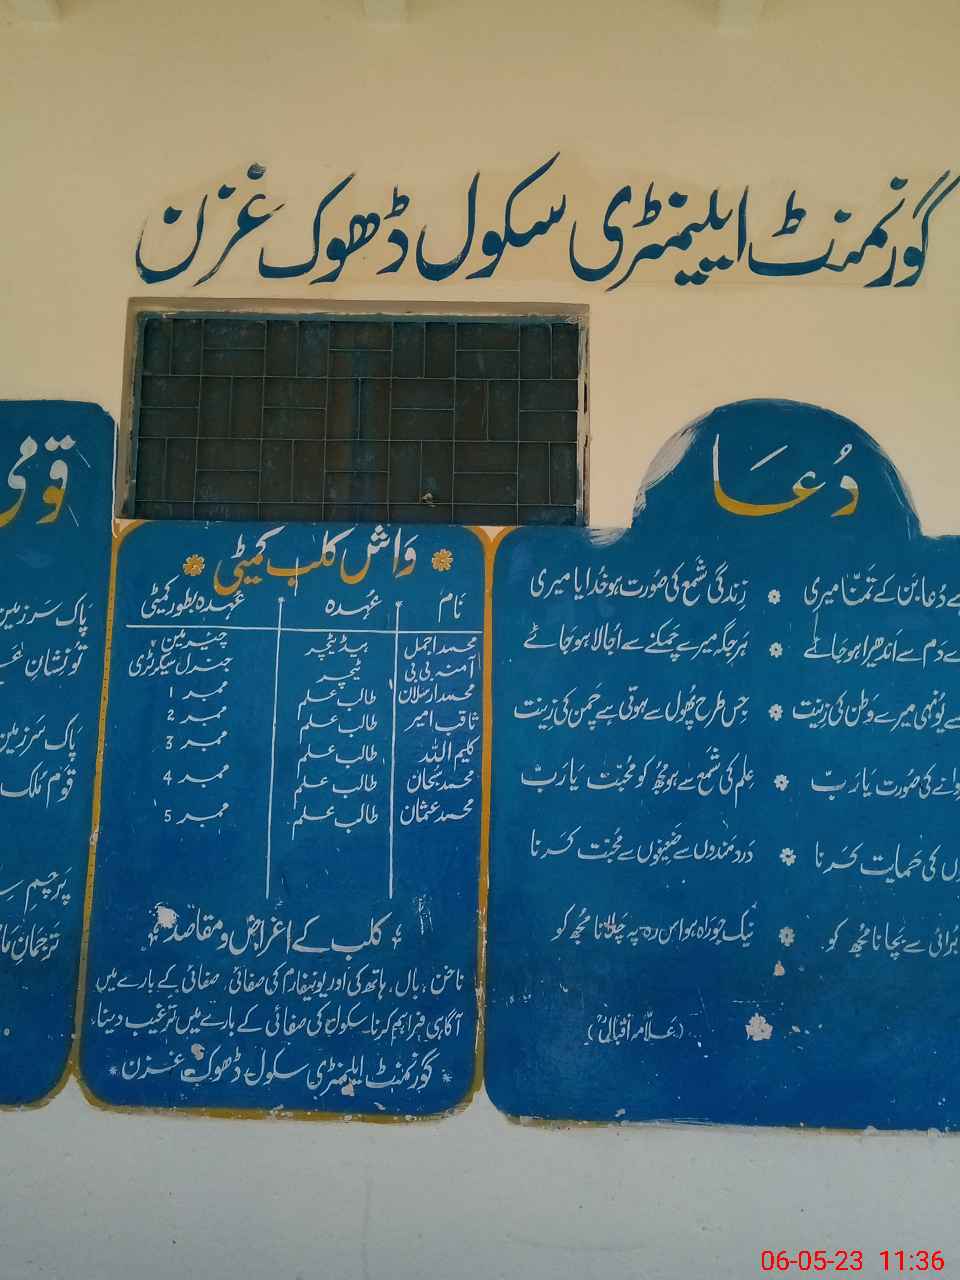 گورنمنٹ ایلیمنٹری سکول ڈھوک غزن
دُعا
ے دُعا بن کے تمنّا میری زندگی شمع کی صُورت ہو خُدایا میری
ے دم سے اندھیرا ہو جائے ہر جگہ میرے چمکنے سے اُجالا ہو جائے
سے یُونہی میرے وطن کی زینت جس طرح پُھول سے ہوتی ہے چمن کی زینت
وانے کی صورت یا رب علم کی شمع سے ہو مُجھ کو محبت یا رب
وں کی حمایت کرنا درد مندوں سے ضعیفوں سے محبت کرنا
برائی سے بچانا مجھ کو نیک جو راہ ہو اس رہ پہ چلانا مجھ کو
(علامہ اقبالؒ)
واش کلب کمیٹی
نام عہدہ عہدہ بطور کمیٹی
محمد اجمل ہیڈ ٹیچر چیئرمین
آمنہ بی بی ٹیچر جنرل سیکرٹری
محمد ارسلان طالب علم ممبر 1
ثاقب امیر طالب علم ممبر 2
کلیم اللہ طالب علم ممبر 3
محمد سبحان طالب علم ممبر 4
محمد عثمان طالب علم ممبر 5
کلب کے اغراض و مقاصد
ناخن، بال، ہاتھ کی اور یونیفارم کی صفائی، صفائی کے بارے میں
آگاہی فراہم کرنا۔ سکول کی صفائی کے بارے میں ترغیب دینا۔
گورنمنٹ ایلیمنٹری سکول ڈھوک غزن
قومی
پاک سرزمین
تُو نشانِ
پاک سرزمین
قوم ملک
پرچمِ
ترجمانِ
06-05-23 11:36